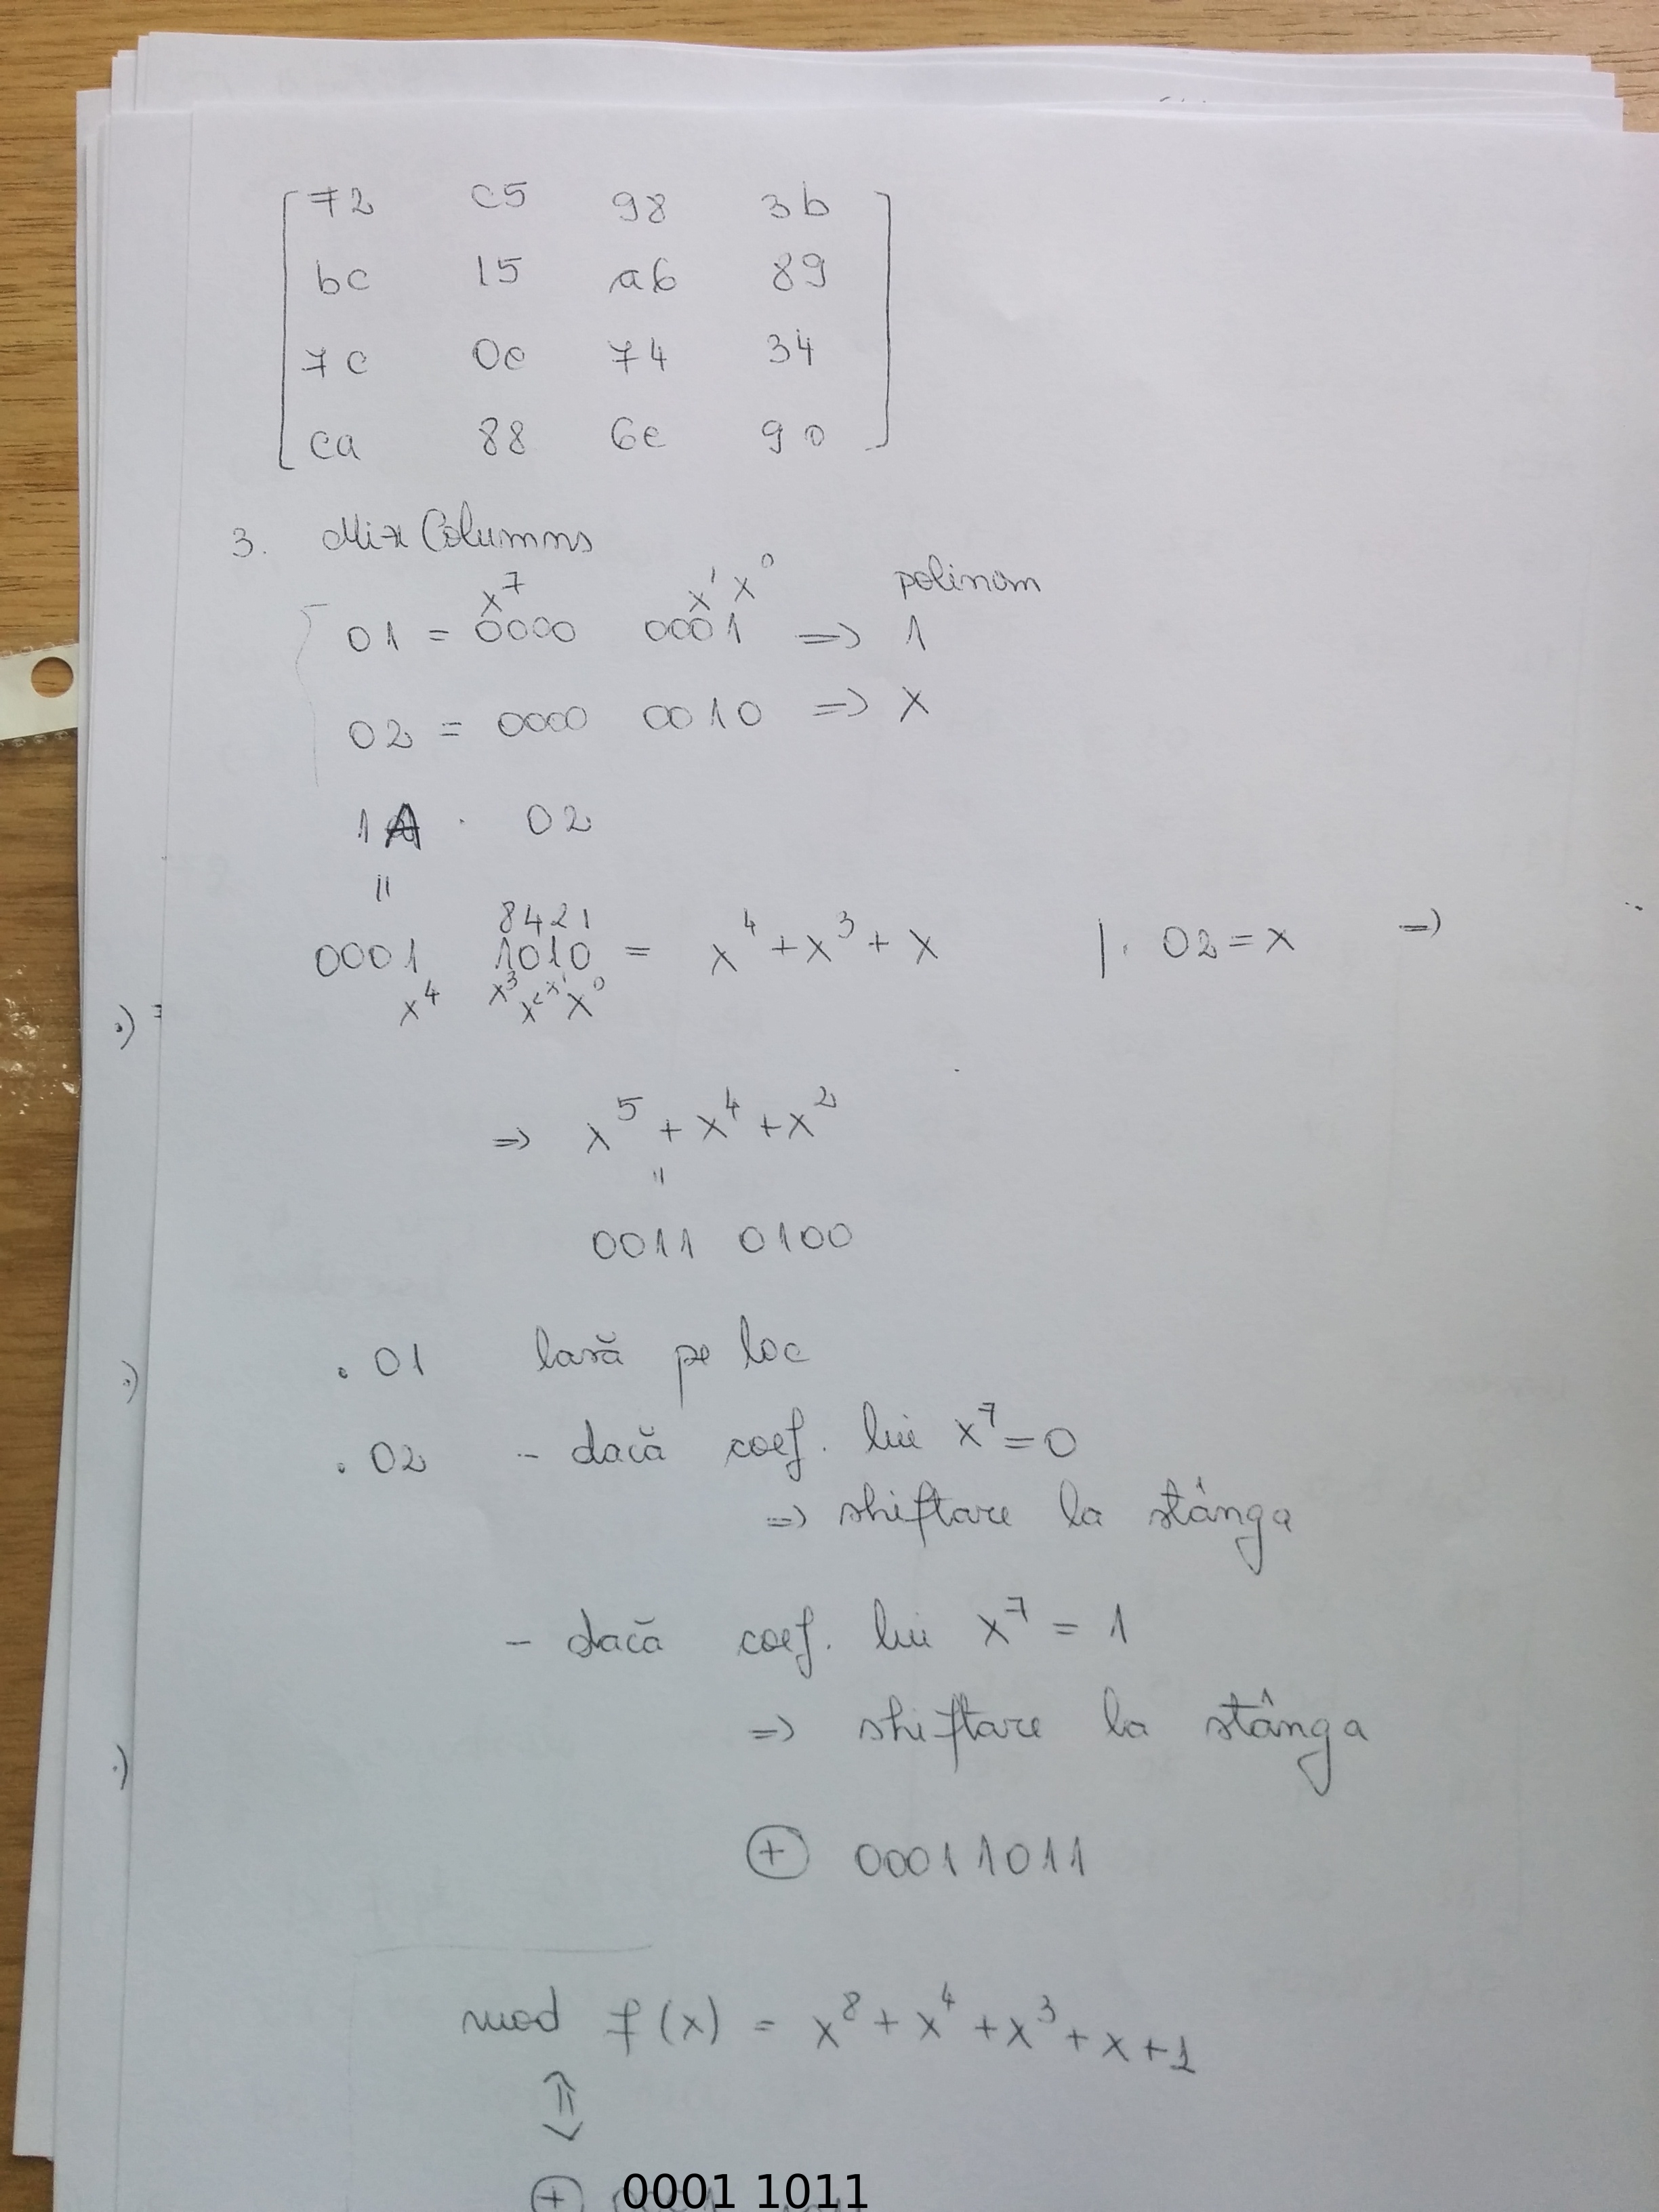 72 c5 98 3b
bc 15 a6 89
7c 0c 74 34
ca 88 6c 90
3. Mix Columns
x⁷ x¹ x⁰ polinom
01 = 0000 0001 => 1
02 = 0000 0010 => x
1A · 02
"
8421
0001 1010 = x⁴ + x³ + x | · 02 = x =>
x⁴ x³ x² x¹ x⁰
=> x⁵ + x⁴ + x²
"
0011 0100
· 01 lasă pe loc
· 02 - dacă coef. lui x⁷ = 0
=> shiftare la stânga
- dacă coef. lui x⁷ = 1
=> shiftare la stânga
⊕ 00011011
mod f(x) = x⁸ + x⁴ + x³ + x + 1
⇕
⊕ 0001 1011